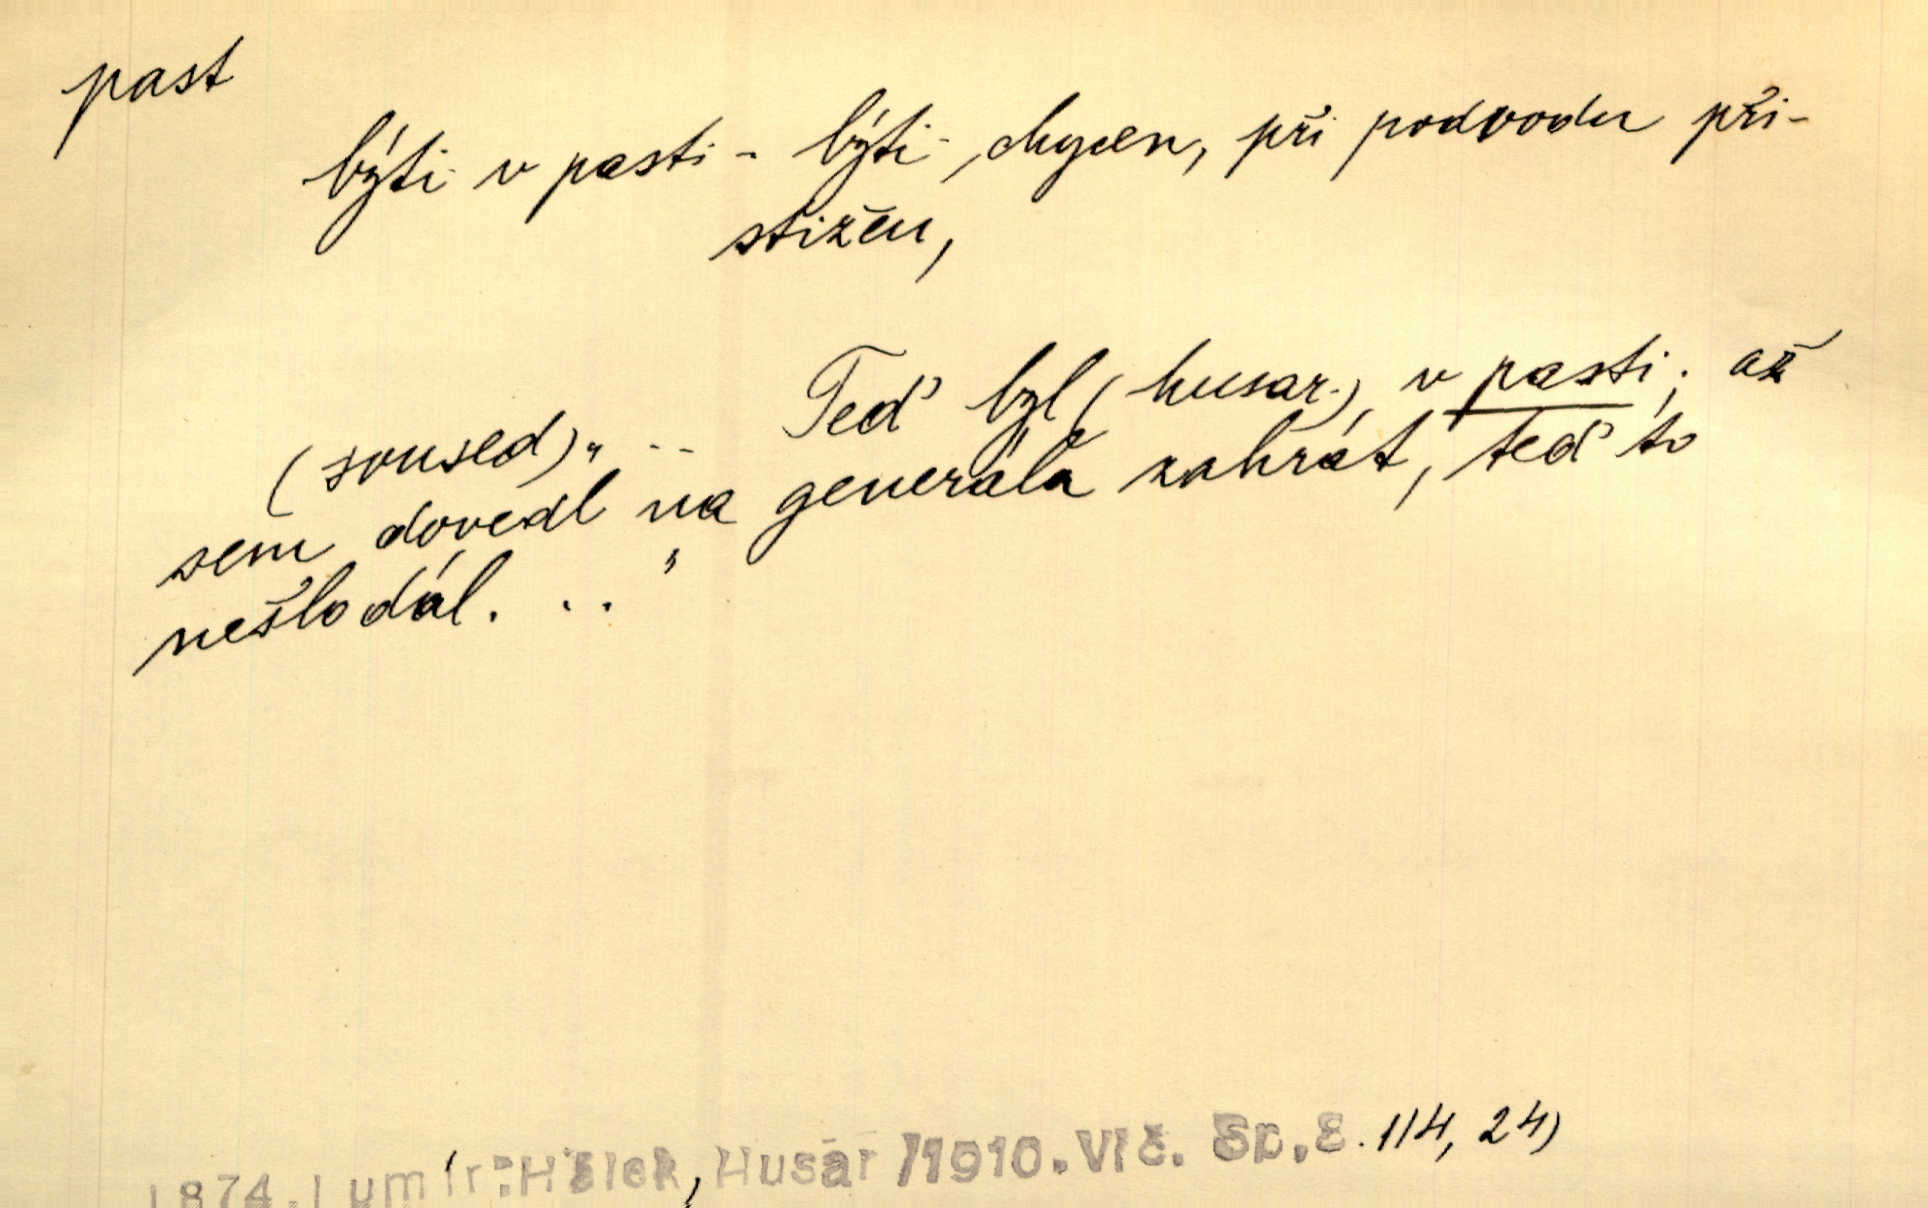 past
býti v pasti - býti chycen, při podvodu při-
stižen,
(soused) „ .. Teď byl (husar) v pasti; až
sem dovedl na generála zahrát, teď to
nešlo dál. . . "
1874. Lumír: Hálek, Husar /1910. Vlč. Sp. 114, 24)